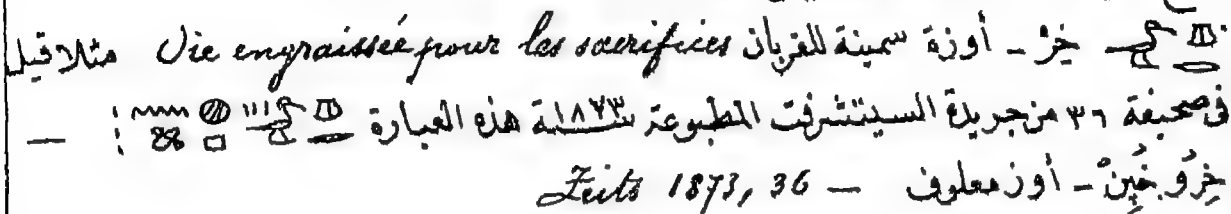 خِرْ - أوزة سمينة للقربان Oie engraissée pour les sacrifices مثلا قيل
فى صحيفة ٣٦ من جريدة السيتشرفت المطبوعة سنة ١٨٧٣ هذه العبارة : — :
خِرُو خُپِنْ - أوز معلوف — Zeits 1873, 36